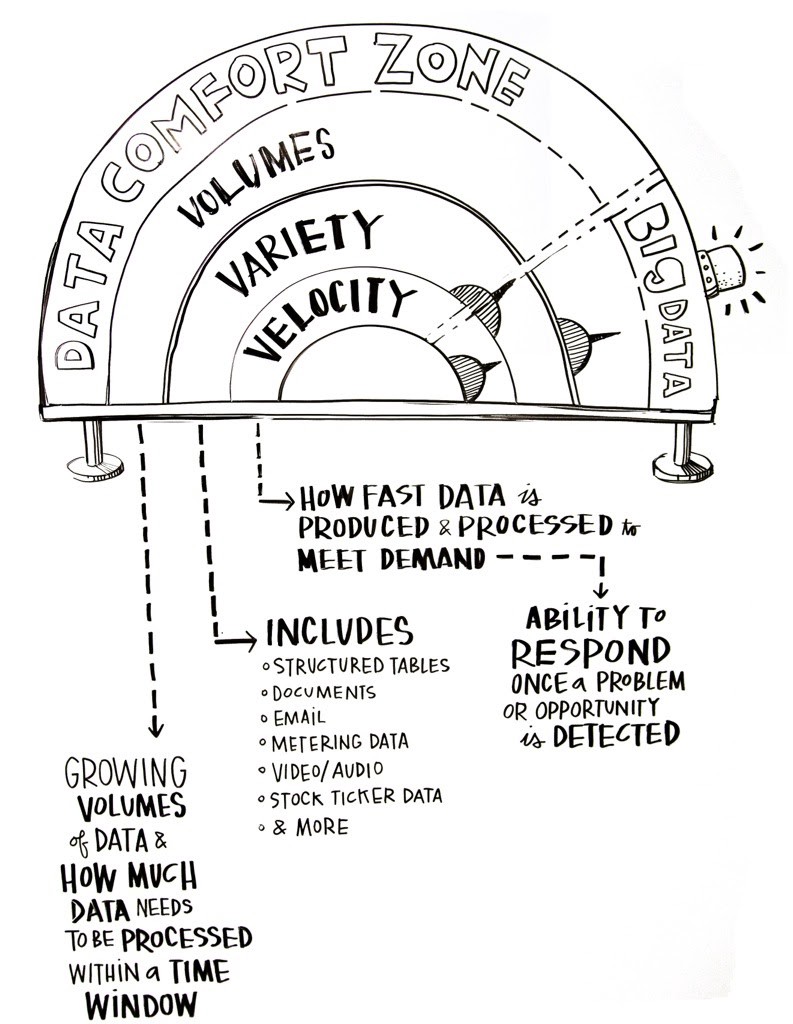 DATA COMFORT ZONE
BIG DATA
VOLUMES
VARIETY
VELOCITY
HOW FAST DATA is
PRODUCED & PROCESSED to
MEET DEMAND
ABILITY TO
RESPOND
ONCE a PROBLEM
OR OPPORTUNITY
is DETECTED
INCLUDES
◦ STRUCTURED TABLES
◦ DOCUMENTS
◦ EMAIL
◦ METERING DATA
◦ VIDEO/AUDIO
◦ STOCK TICKER DATA
◦ & MORE
GROWING
VOLUMES
of DATA &
HOW MUCH
DATA NEEDS
TO BE PROCESSED
WITHIN a TIME
WINDOW